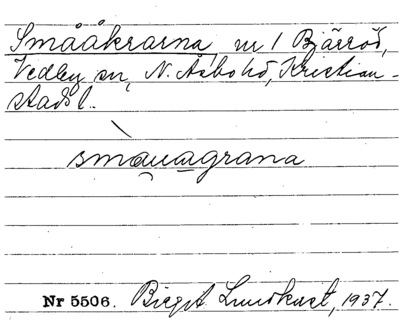 Smååkrarna, nr 1 Bjärröd,
Vedby sn, N. Åsbo hd, Kristian-
stads l.
småuagrana
Nr 5506. Birgit Lundkvist, 1937.